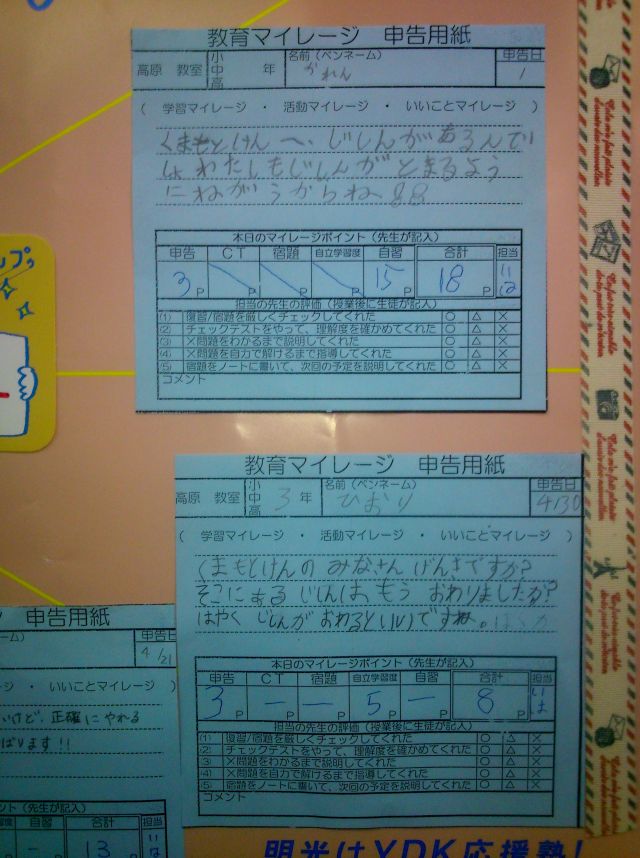 教育マイレージ 申告用紙
高原 教室 小 中 高 年 名前(ペンネーム) かれん 申告日 1
( 学習マイレージ ・ 活動マイレージ ・ いいことマイレージ )
くまもとけんへ、じしんがあるんで
しょ わたしもじしんがとまるよう
にねがうからね
本日のマイレージポイント(先生が記入)
申告 CT 宿題 自立学習度 自習 合計 担当
3P P P P 15P 18P
担当の先生の評価(授業後に生徒が記入)
(1) 復習/宿題を厳しくチェックしてくれた ○ △ ×
(2) チェックテストをやって、理解度を確かめてくれた ○ △ ×
(3) ×問題をわかるまで説明してくれた ○ △ ×
(4) ×問題を自力で解けるまで指導してくれた ○ △ ×
(5) 宿題をノートに書いて、次回の予定を説明してくれた ○ △ ×
コメント
教育マイレージ 申告用紙
高原 教室 小 中 高 3年 名前(ペンネーム) ひおり 申告日 4/30
( 学習マイレージ ・ 活動マイレージ ・ いいことマイレージ )
くまもとけんの みなさん げんきですか?
そこにある じしんは、もう おわりましたか?
はやく じしんが おわるといいですね。
本日のマイレージポイント(先生が記入)
申告 CT 宿題 自立学習度 自習 合計 担当
3P ーP ーP 5P ーP 8P
担当の先生の評価(授業後に生徒が記入)
(1) 復習/宿題を厳しくチェックしてくれた ○ △ ×
(2) チェックテストをやって、理解度を確かめてくれた ○ △ ×
(3) ×問題をわかるまで説明してくれた ○ △ ×
(4) ×問題を自力で解けるまで指導してくれた ○ △ ×
(5) 宿題をノートに書いて、次回の予定を説明してくれた ○ △ ×
コメント
申告用紙
申告日
4/21
・ いいことマイレージ )
いけど、正確にやれる
ばります!!
ント(先生が記入)
自習 合計 担当
ーP 13P
明光はYDK応援塾!